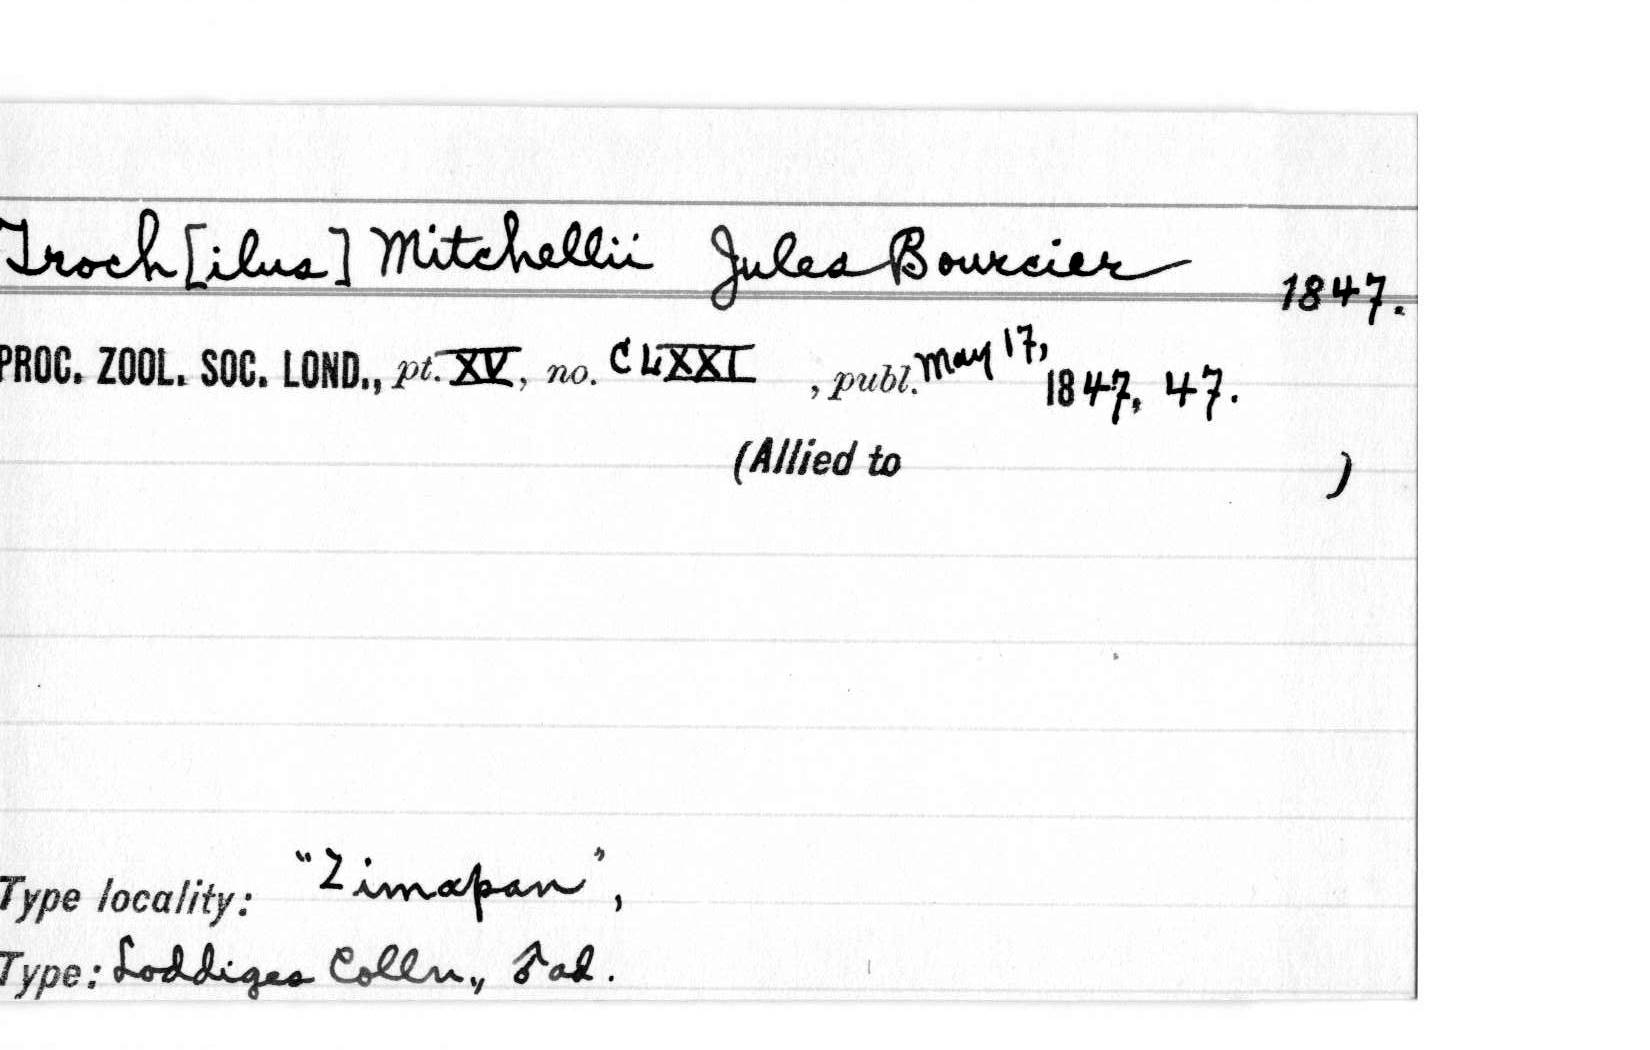 Troch[ilus] Mitchellii Jules Bourcier 1847.
PROC. ZOOL. SOC. LOND., pt. XV, no. CLXXI, publ. May 17, 1847, 47.
(Allied to )
Type locality: "Zimapan",
Type: Loddiges Colln., ♂ ad.